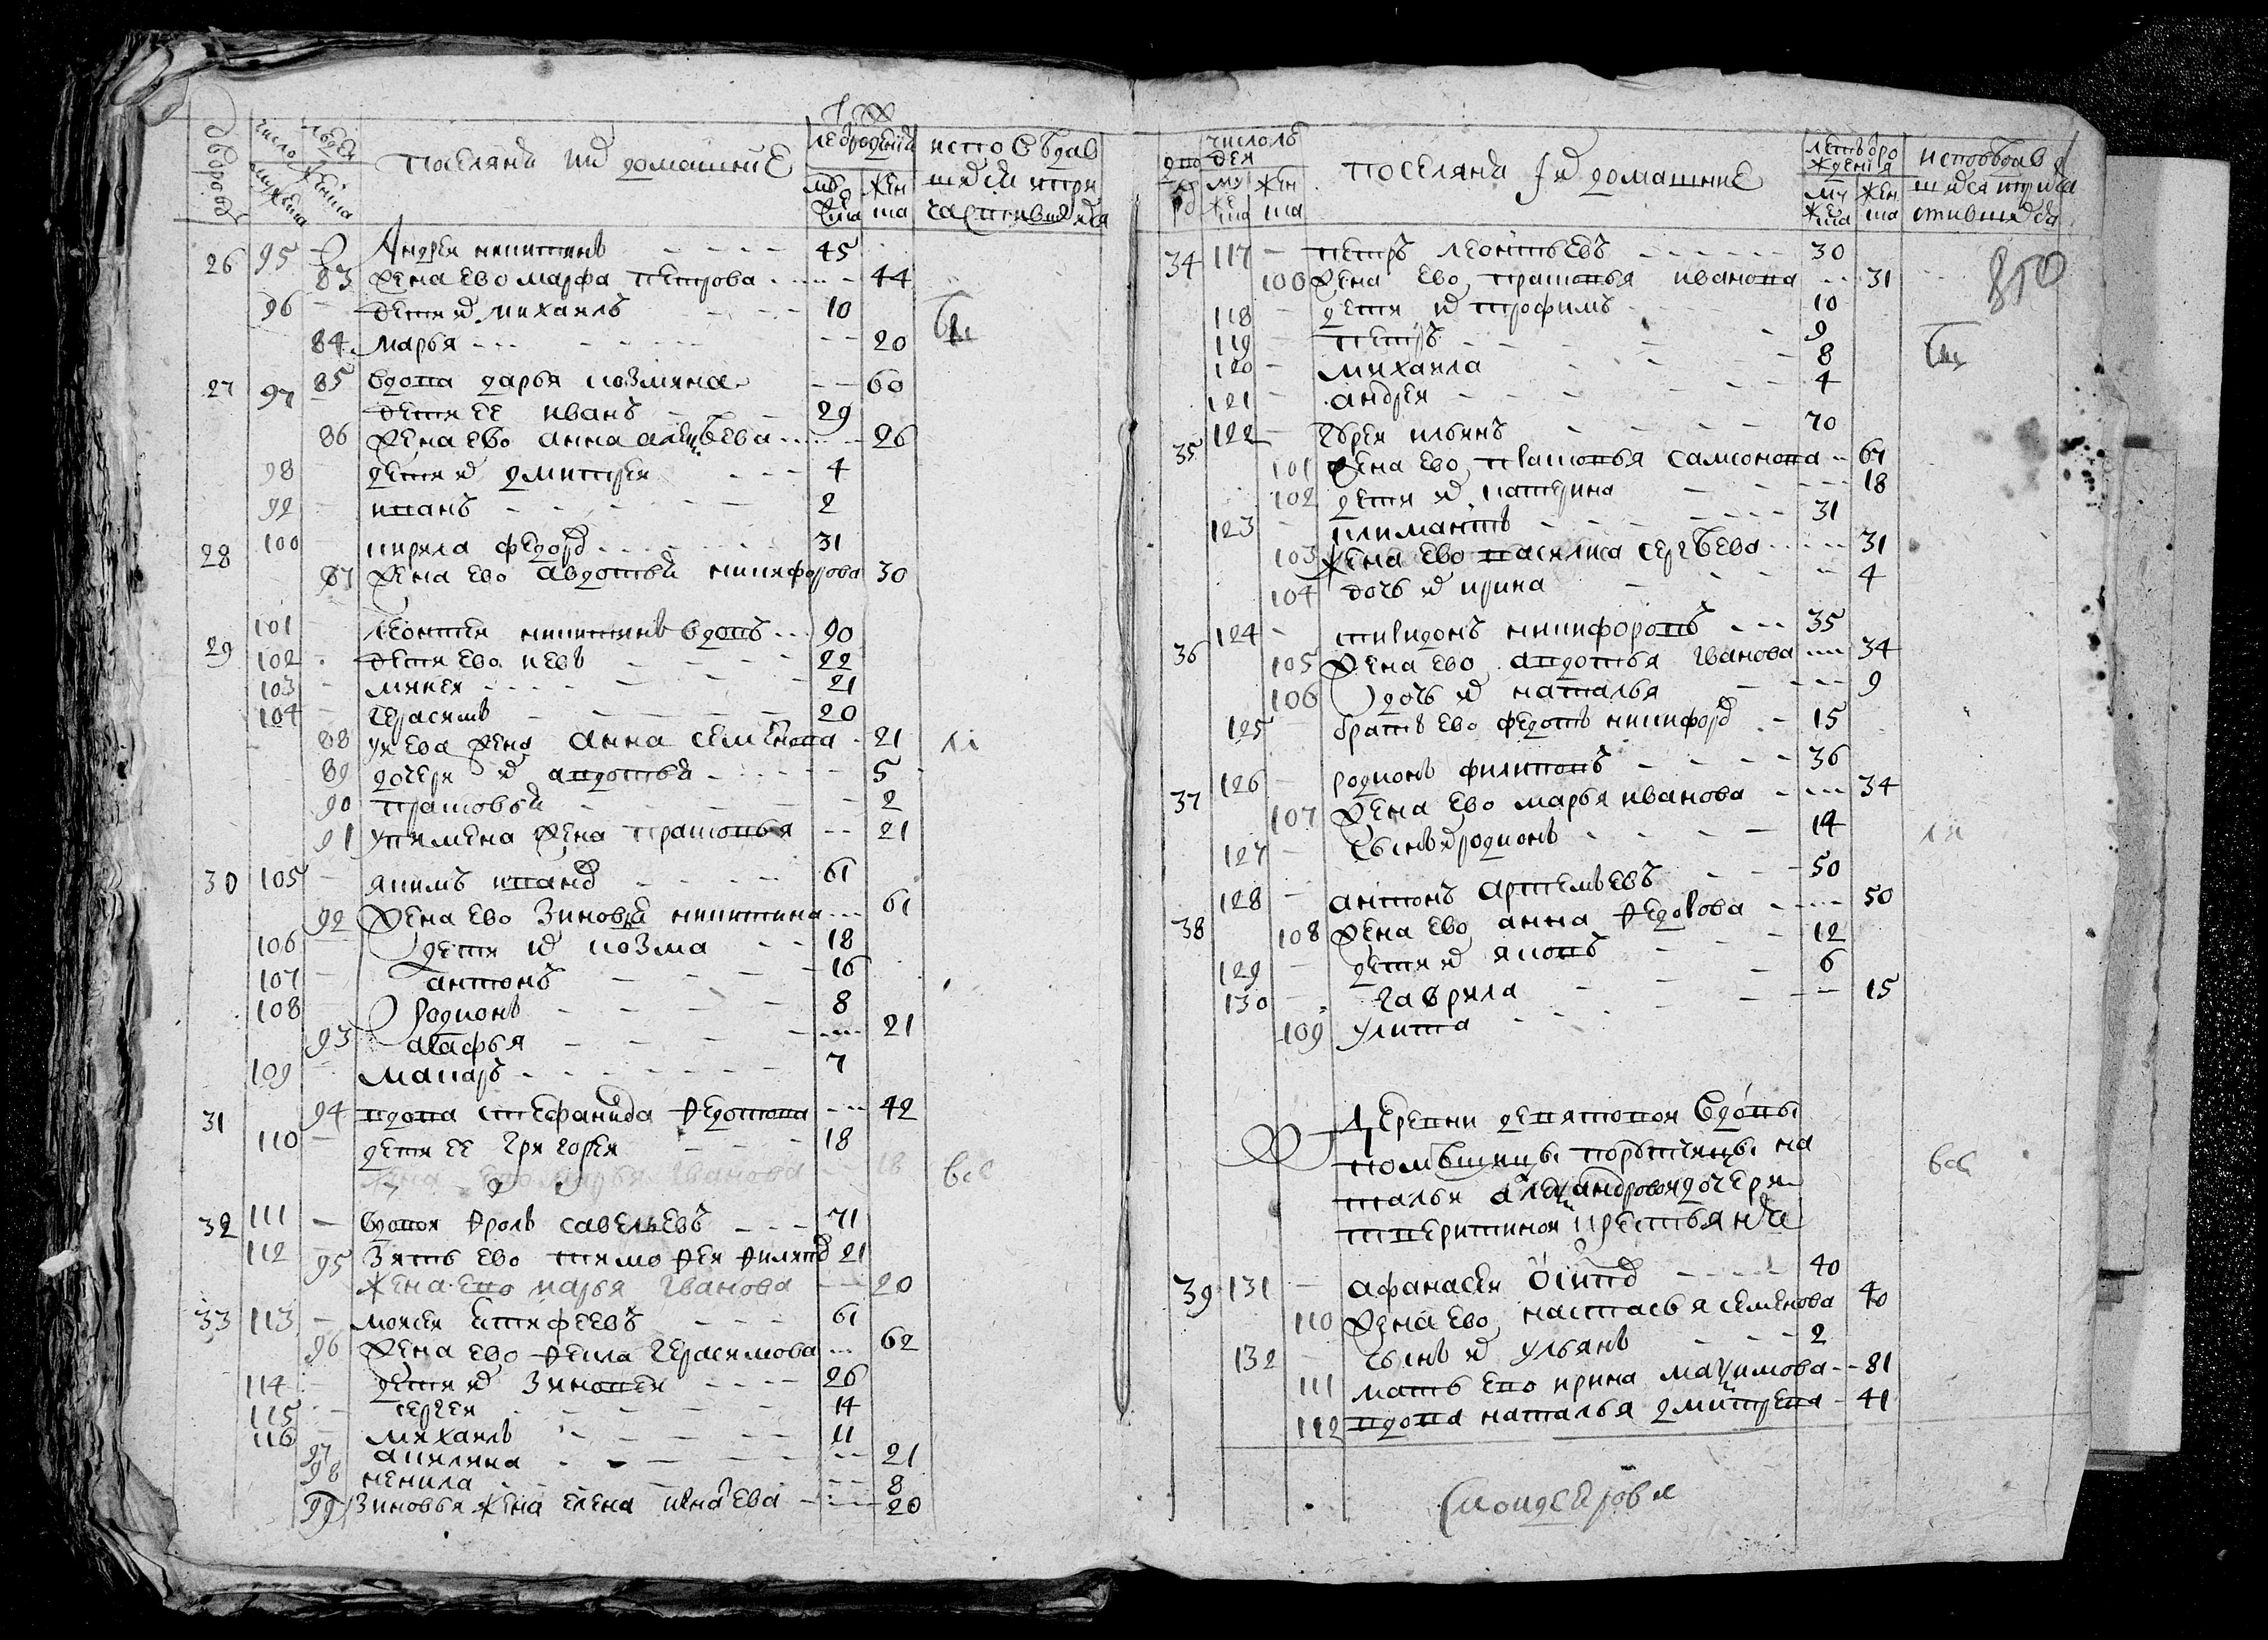 поселяня их домашние
летъ рождения
исповедав
шихся и при
частившихся
26 95 Андрей никитинъ 45
83 Жена ево марфа петрова 44
96 дети их михаилъ 10
84 марья 20
27 85 вдова дарья козмина 60
97 дети ее иванъ 29
86 Жена ево анна алексѣева 26
98 дети их дмитрей 4
99 иванъ 2
28 100 кирила федоров 31
87 Жена ево авдотья никифорова 30
29 101 леонтей никитинъ вдовъ 90
102 дети ево левъ 22
103 микея 21
104 герасимъ 20
88 Жена анна семенова 21
89 дочери их авдотья 5
90 прасковья 2
91 Жена прасковья 21
30 105 якимъ иванов 61
92 Жена ево Зиновья никитина 61
106 дети их козма 18
107 антонъ 16
108 Родионъ 8
93 агафья 21
109 макаръ 7
31 94 вдова стефанида Федотова 42
110 дети ее григорей 18
Жена ево марья иванова 18
все
32 111 вдовой Фролъ савельевъ 71
112 95 Зять ево тимофей Филипов 21
Жена ево марья иванова 20
33 113 моисей естифеевъ 61
96 Жена ево Фекла герасимова 62
114 дети их Зиновей 26
115 сергей 14
116 михаилъ 11
97 акилина 21
98 ненила 8
99 Зиновья жена елена игнатева 20
дво
ров
число лю
дей
му
жеска
жен
ска
поселяня и их домашние
летъ от ро
ждения
му
жеска
жен
ска
исповедав
шихся и прича
стившихся
850
34 117 петръ леонтьевъ 30
100 Жена ево прасковья иванова 31
118 дети их трофимъ 10
119 петръ 9
120 михаила 8
121 андрей 4
35 122 гурей ильинъ 70
101 Жена ево прасковья самсонова 67
102 дети их катерина 18
123 климантъ 31
103 Жена ево василиса сергѣева 31
104 дочь их ирина 4
36 124 спиридонъ никифоровъ 35
105 Жена ево авдотья иванова 34
106 дочь их наталья 9
125 братъ ево федотъ никифоров 15
37 126 родионъ филиповъ 36
107 Жена ево марья иванова 34
127 сынъ их родионъ 14
38 128 антонъ артемьевъ 50
108 Жена ево анна Федорова 50
129 дети их яковъ 12
130 гаврила 6
109 улита 15
Деревни девятовой вдовы
помѣщицы порутчицы на
тальи александровой дочери
тверитиной крестьяня
все
39 131 афанасей осипов 40
110 Жена ево настасья семенова 40
132 сынъ их ульянъ 2
111 мать ево ирина максимова 81
112 вдова наталья дмитрева 41